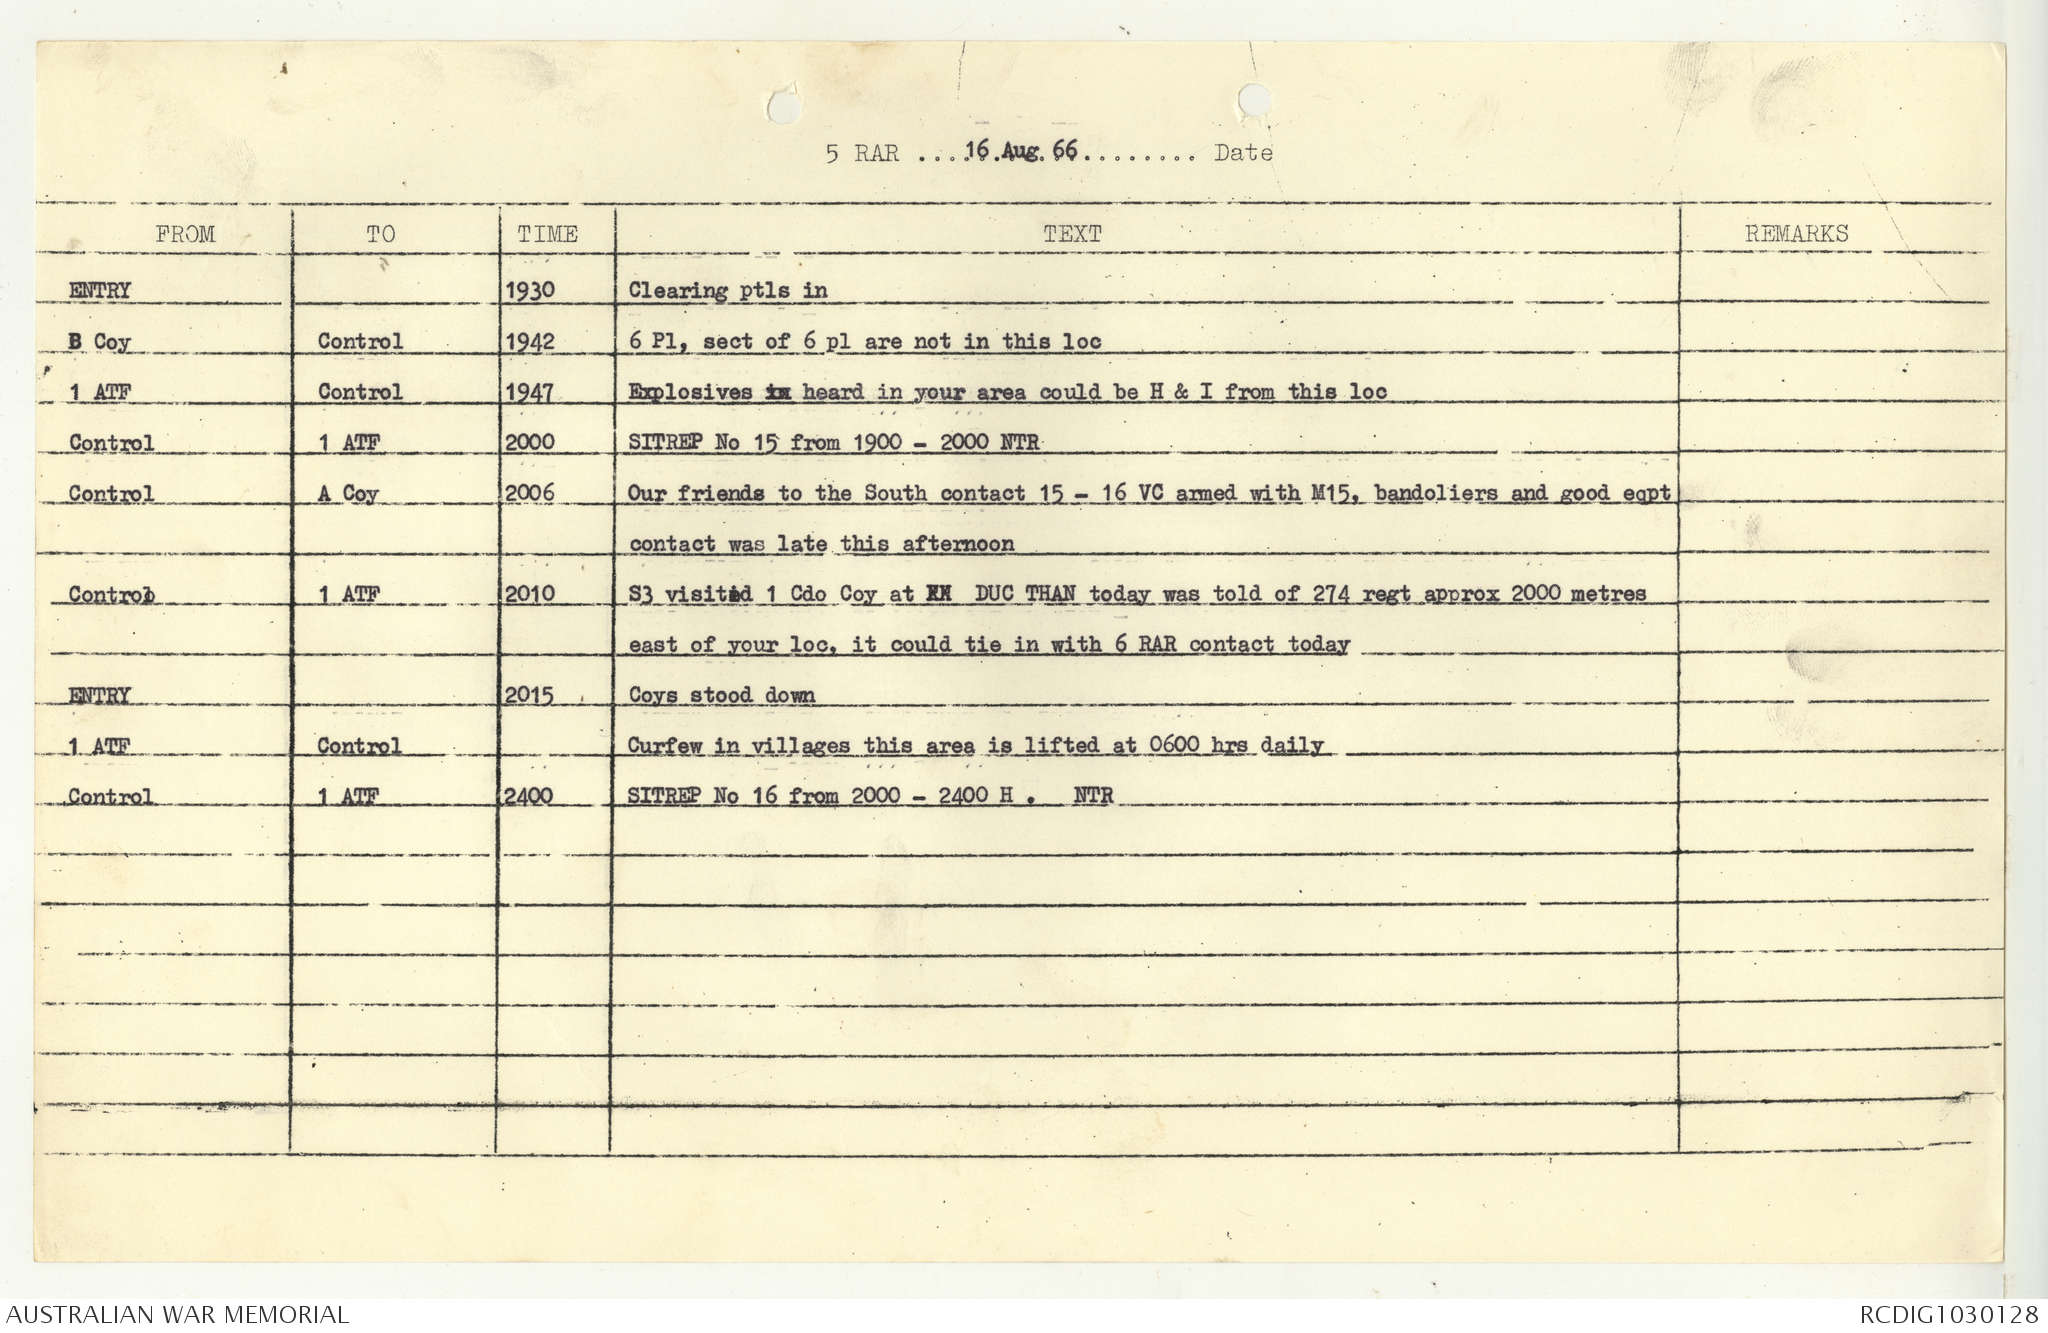 5 RAR ....16.Aug.66......... Date
FROM TO TIME TEXT REMARKS
ENTRY 1930 Clearing ptls in
B Coy Control 1942 6 Pl, sect of 6 pl are not in this loc
1 ATF Control 1947 Explosives heard in your area could be H & I from this loc
Control 1 ATF 2000 SITREP No 15 from 1900 - 2000 NTR
Control A Coy 2006 Our friends to the South contact 15 - 16 VC armed with M15, bandoliers and good eqpt
contact was late this afternoon
Control 1 ATF 2010 S3 visited 1 Cdo Coy at DUC THAN today was told of 274 regt approx 2000 metres
east of your loc, it could tie in with 6 RAR contact today
ENTRY 2015 Coys stood down
1 ATF Control Curfew in villages this area is lifted at 0600 hrs daily
Control 1 ATF 2400 SITREP No 16 from 2000 - 2400 H . NTR
AUSTRALIAN WAR MEMORIAL RCDIG1030128